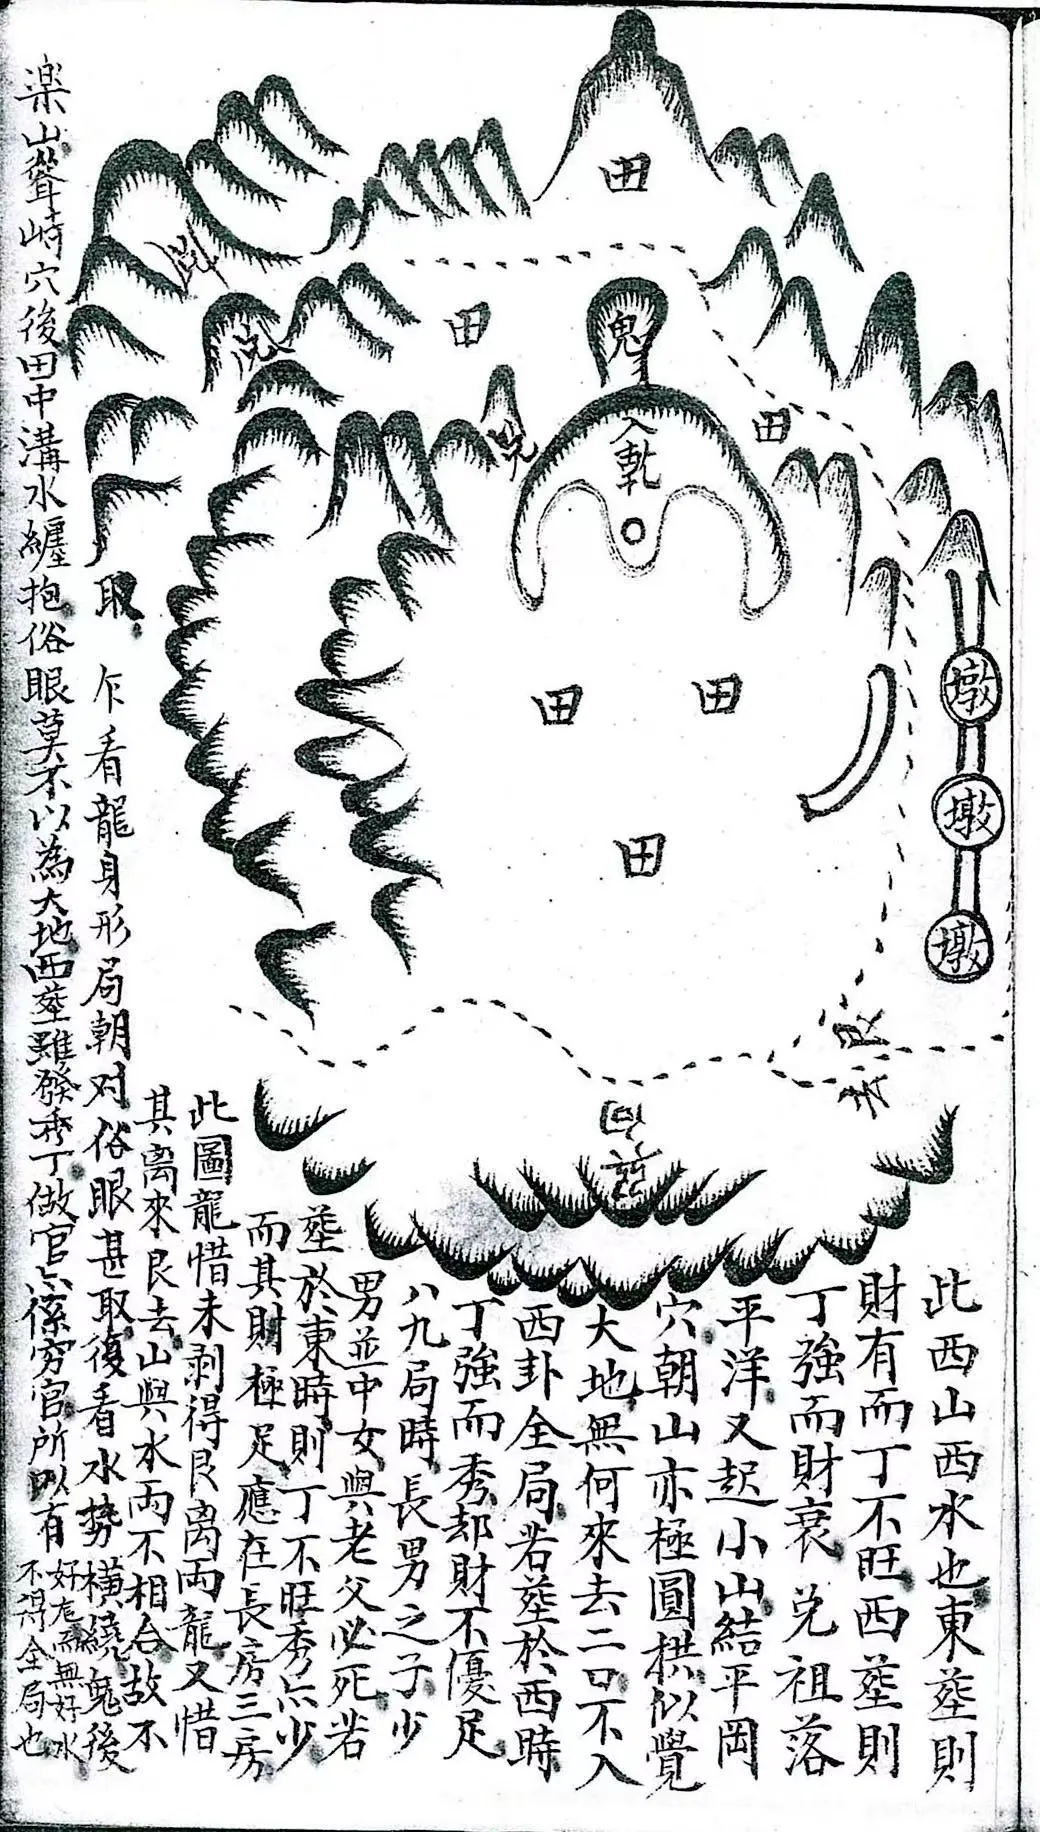 此西山西水也東塟則
財有而丁不旺西塟則
丁強而財衰兌祖落
平洋又起小山結平岡
穴朝山亦極圓拱似覺
大地無何來去二口不入
西卦全局若塟於西時
丁強而秀却財不優足
八九局時長男之子少
男並中女與老父必死若
塟於東時則丁不旺秀亦少
而其財極足應在長房三房
此圖龍惜未剥得艮离両龍又惜
其离來艮去山與水両不相合故不
取
乍看龍身形局朝对俗眼甚取復看水勢橫繞䰟後
樂山聳峙穴後田中溝水纏抱俗眼莫不以為大地西塟雖發秀丁做官亦係穷官所以有
好龙而無好水
不得全局也
田
田
鬼
兌
兌
田
入乾
田
田
田
墩
墩
墩